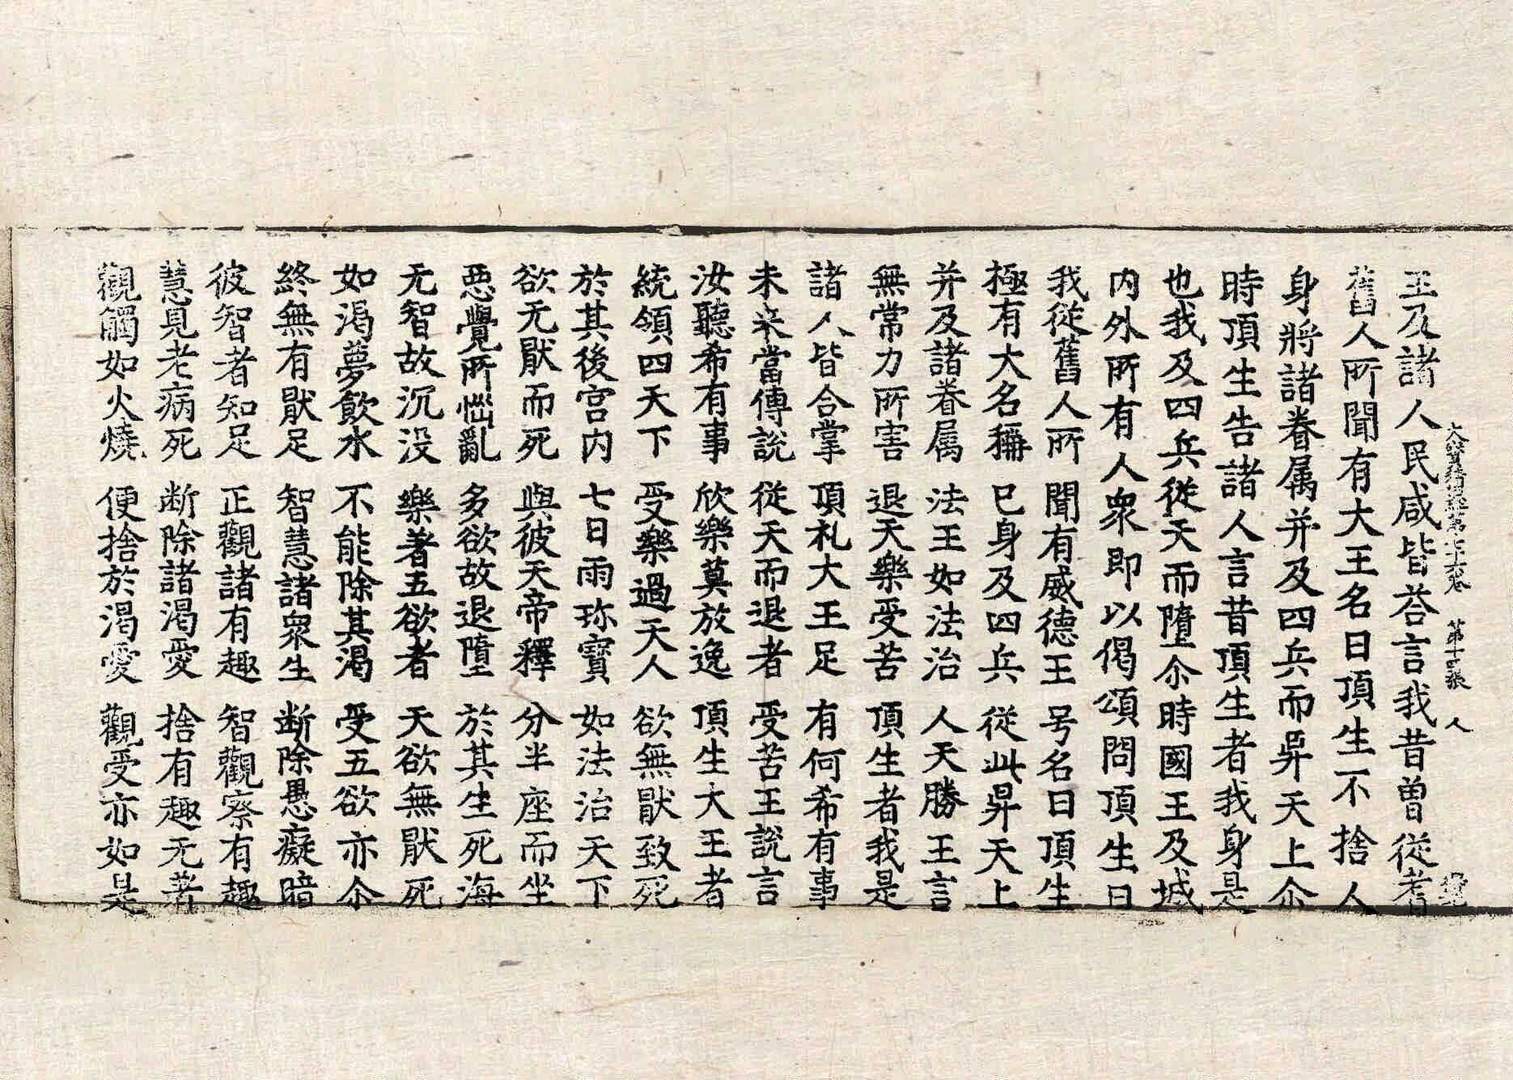 大寶積經第七十六卷　第十四張　人
王及諸人民咸皆荅言我昔曾從耆
舊人所聞有大王名曰頂生不捨人
身將諸眷属并及四兵而昇天上尒
時頂生告諸人言昔頂生者我身是
也我及四兵從天而墮尒時國王及城
内外所有人衆即以偈頌問頂生曰
我從舊人所　聞有威德王　号名曰頂生
極有大名稱　已身及四兵　從此昇天上
并及諸眷属　法王如法治　人天勝王言
無常力所害　退天樂受苦　頂生者我是
諸人皆合掌　頂礼大王足　有何希有事
未来當傳說　從天而退者　受苦王說言
汝聽希有事　欣樂莫放逸　頂生大王者
統領四天下　受樂過天人　欲無猒致死
於其後宫内　七日雨珎寳　如法治天下
欲无猒而死　與彼天帝釋　分半座而坐
惡覺所惱亂　多欲故退墮　於其生死海
无智故沉没　樂著五欲者　天欲無猒死
如渴夢飲水　不能除其渴　受五欲亦尒
終無有猒足　智慧諸衆生　断除愚癡暗
彼智者知足　正觀諸有趣　智觀察有趣
慧見老病死　断除諸渴愛　捨有趣无著
觀觸如火燒　便捨於渴愛　觀受亦如是